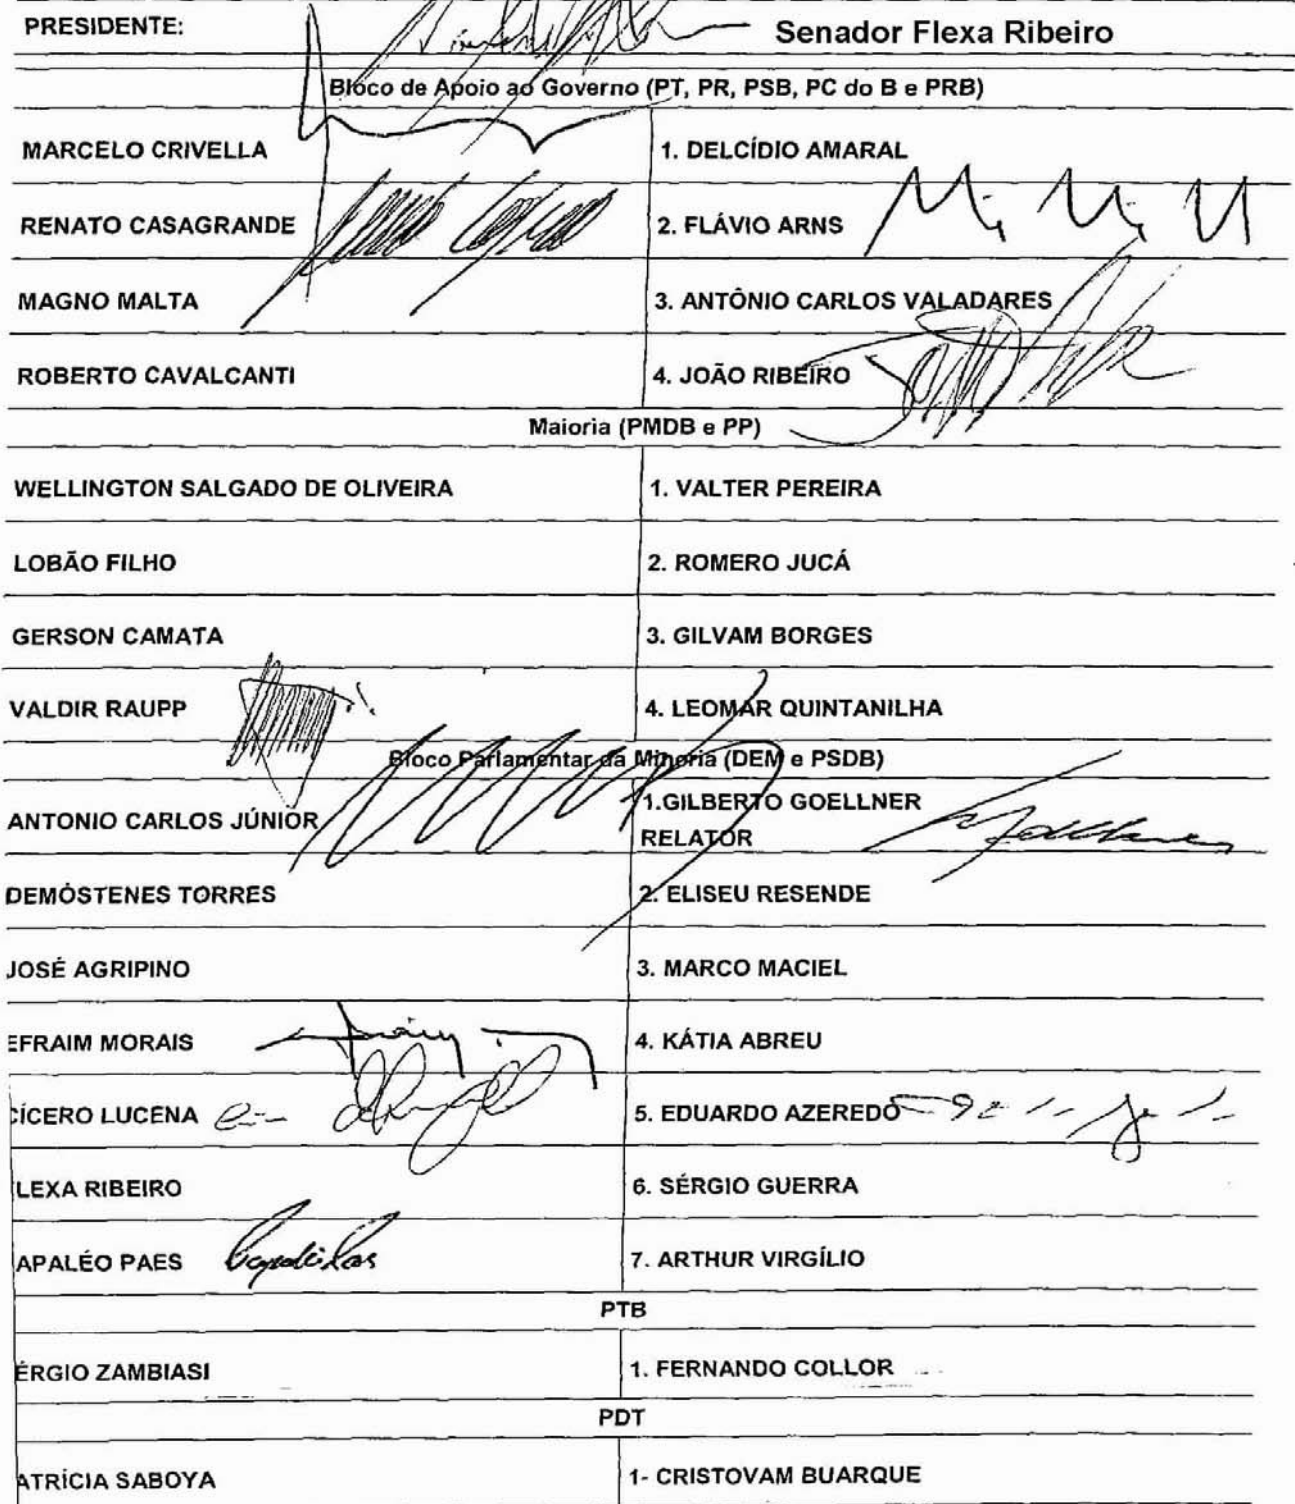 PRESIDENTE: Senador Flexa Ribeiro
Bloco de Apoio ao Governo (PT, PR, PSB, PC do B e PRB)
MARCELO CRIVELLA 1. DELCÍDIO AMARAL
RENATO CASAGRANDE 2. FLÁVIO ARNS
MAGNO MALTA 3. ANTÔNIO CARLOS VALADARES
ROBERTO CAVALCANTI 4. JOÃO RIBEIRO
Maioria (PMDB e PP)
WELLINGTON SALGADO DE OLIVEIRA 1. VALTER PEREIRA
LOBÃO FILHO 2. ROMERO JUCÁ
GERSON CAMATA 3. GILVAM BORGES
VALDIR RAUPP 4. LEOMAR QUINTANILHA
Bloco Parlamentar da Minoria (DEM e PSDB)
ANTONIO CARLOS JÚNIOR 1.GILBERTO GOELLNER
RELATOR
DEMÓSTENES TORRES 2. ELISEU RESENDE
JOSÉ AGRIPINO 3. MARCO MACIEL
EFRAIM MORAIS 4. KÁTIA ABREU
CÍCERO LUCENA 5. EDUARDO AZEREDO
LEXA RIBEIRO 6. SÉRGIO GUERRA
APALÉO PAES 7. ARTHUR VIRGÍLIO
PTB
ÉRGIO ZAMBIASI 1. FERNANDO COLLOR
PDT
ATRÍCIA SABOYA 1- CRISTOVAM BUARQUE